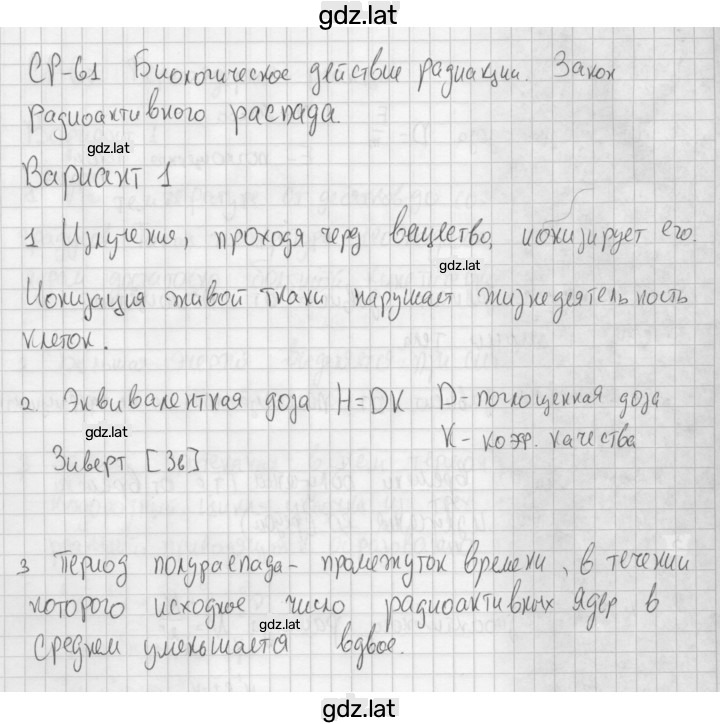 gdz.lat
СР-61 Биологическое действие радиации. Закон
радиоактивного распада.
gdz.lat
Вариант 1
1 Излучения, проходя через вещество, ионизирует его.
gdz.lat
Ионизация живой ткани нарушает жизнедеятельность
клеток.
2. Эквивалентная доза H=DK D-поглощенная доза
K- коэф. качества
gdz.lat
Зиверт [Зв]
3 Период полураспада- промежуток времени, в течении
которого исходное число радиоактивных ядер в
gdz.lat
среднем уменьшается вдвое.
gdz.lat